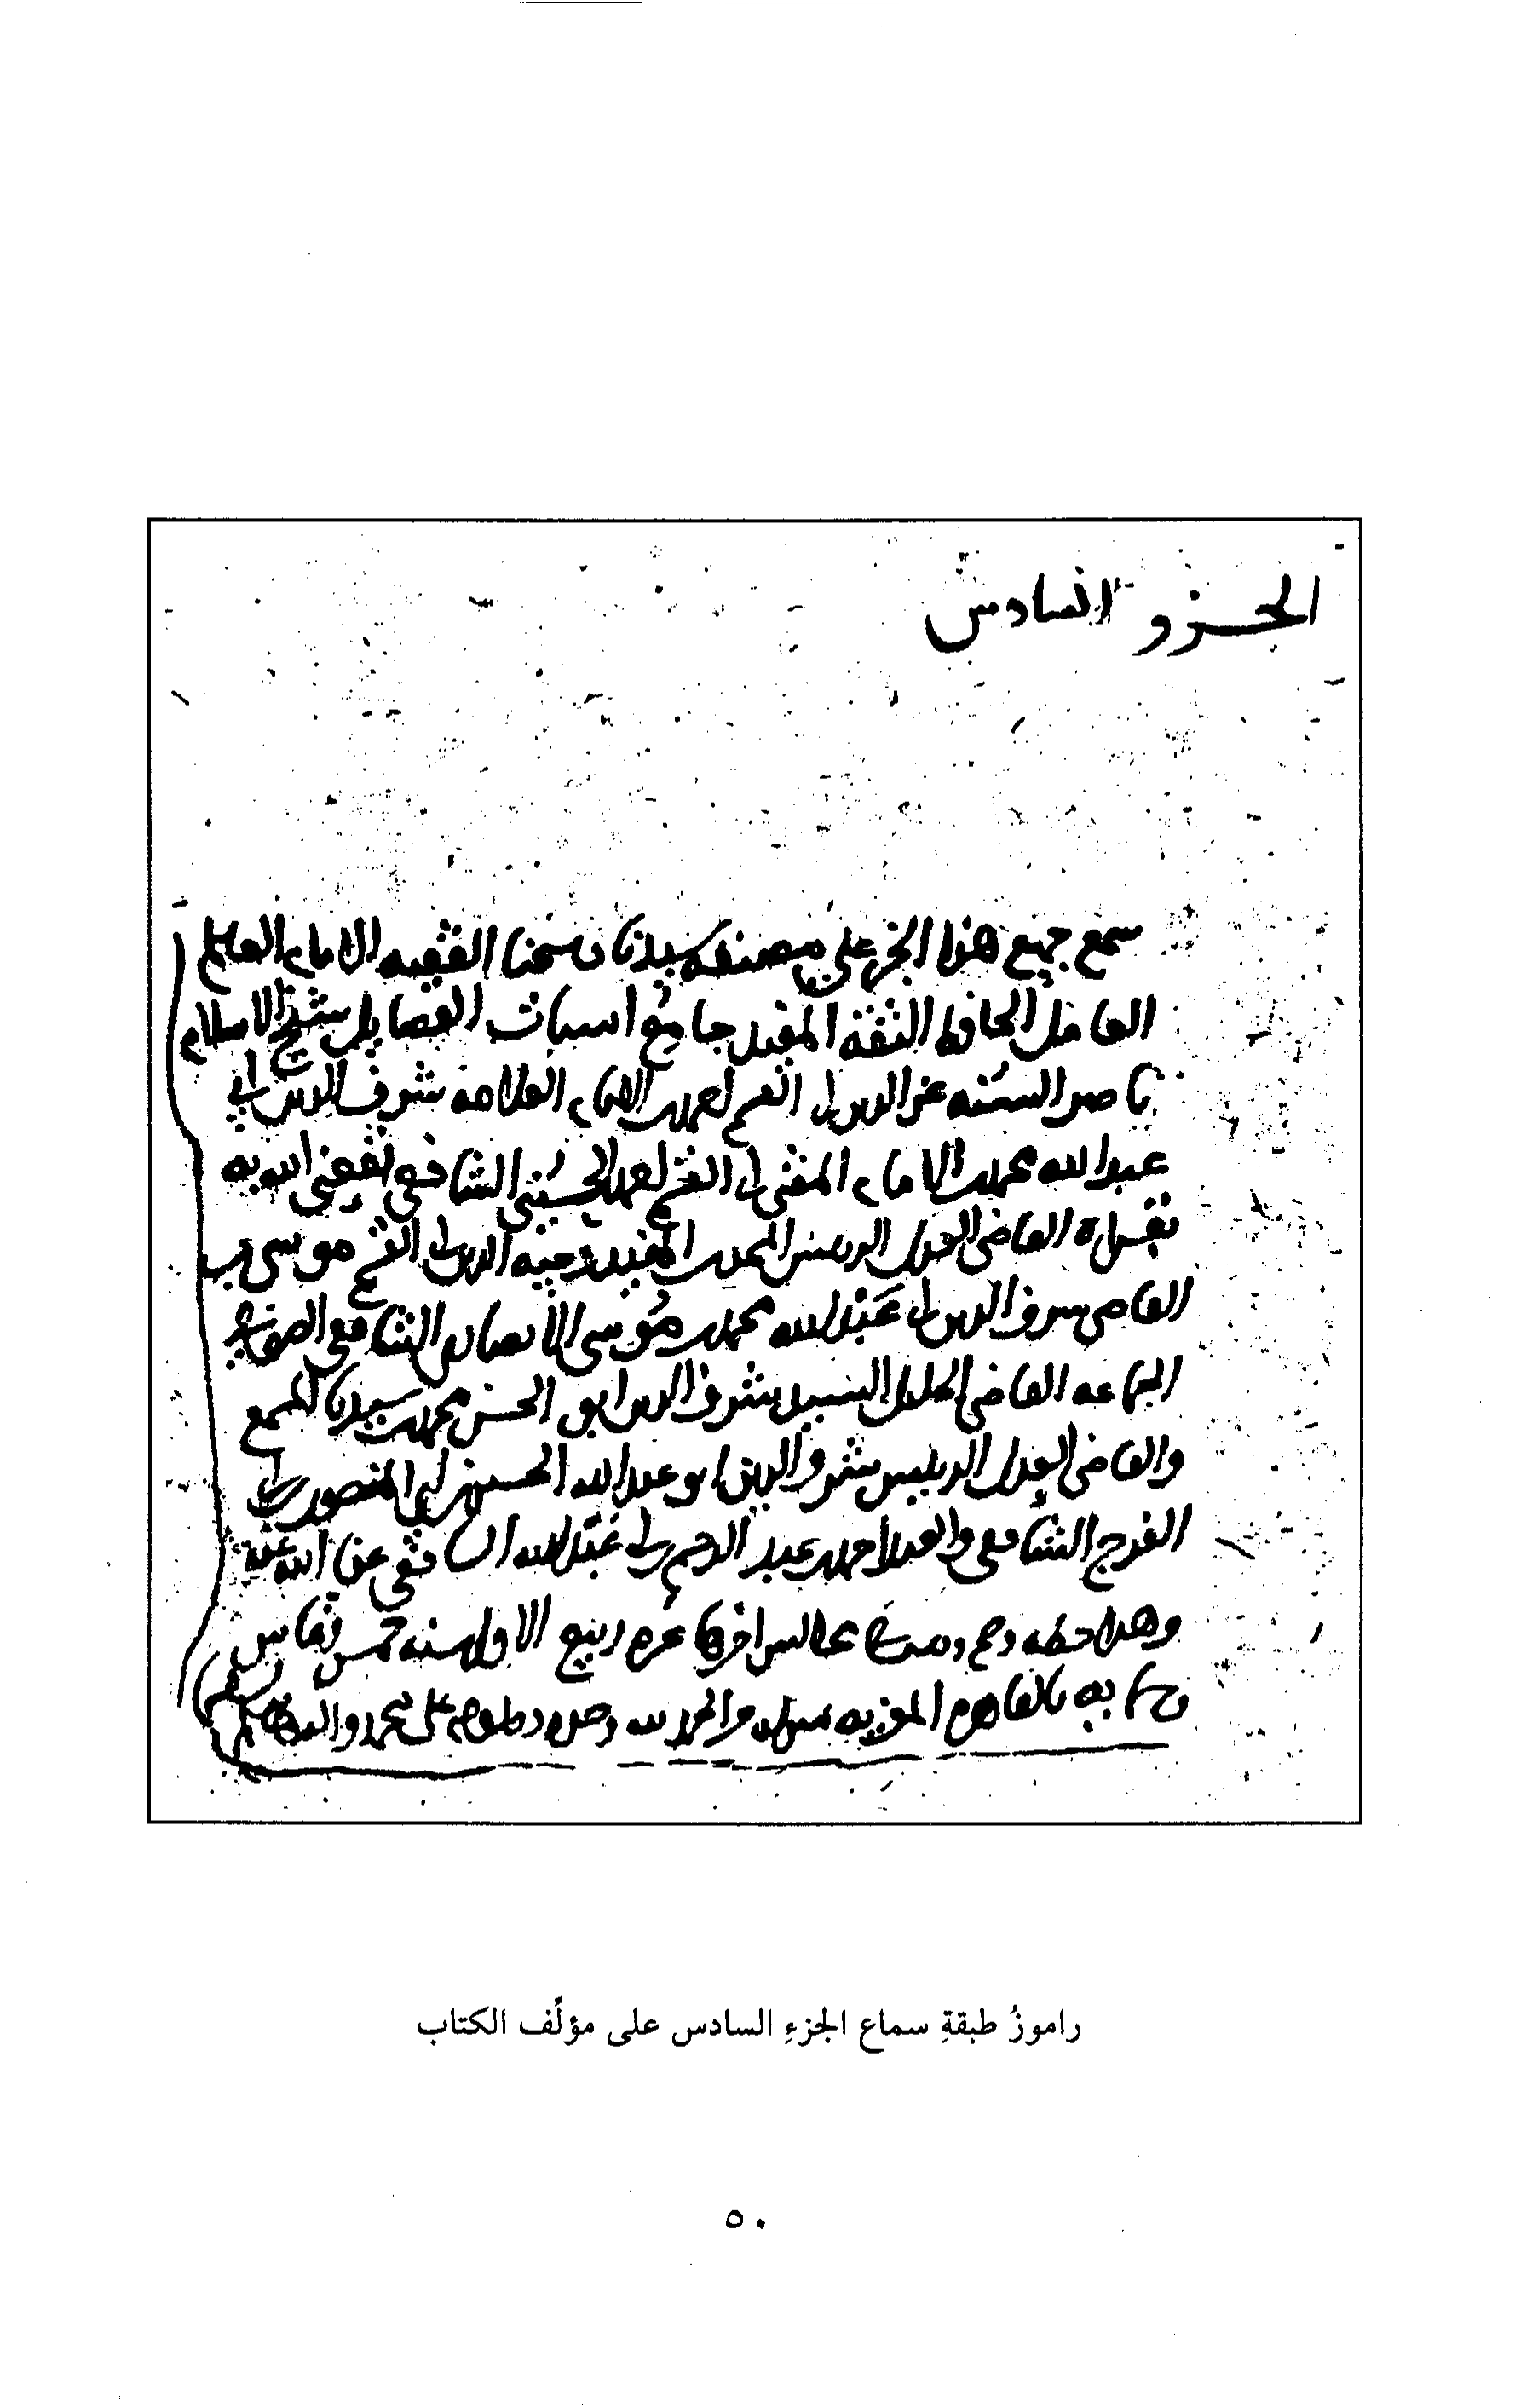 الجزو السادس
سمع جميع هذا الجزء على مصنفه سيدنا وشيخنا الفقيه الامام العالم
الفاضل الحافظ الثقة المفيد جامع اسباب الفضايل شيخ الاسلام
ناصر السنه عز الدين ابي القسم احمد بن الامام العلامه شرف الدين ابي
عبد الله محمد بن الامام المفتي ابي القسم احمد الحسيني الشافعي نفعني الله به
القاضي العدل الرييس المحدث المفيد وجيه الدين ابي القسم موسى بن
القاضي شرف الدين ابي عبد الله محمد بن موسى الأنصاري الشافعي
الجماعه القاضي الجليل السيد شرف الدين ابو الحسن محمد بن سيدنا المسمع
والقاضي العدل الرييس شرف الدين ابو عبد الله الحسين بن ابي المنصور بن ابي
الفرج الشافعي والعبد احمد بن عبد الرحيم بن عبد الله الشافعي عفا الله عنه
وهذا خطه وصح وثبت في مجالس اخرها غره ربيع الاول سنه خمس
بالقاهره المعزيه والحمد لله وحده وصلوته على محمد واله
راموزُ طبقةِ سماع الجزءِ السادس على مؤلِّف الكتاب
٥٠